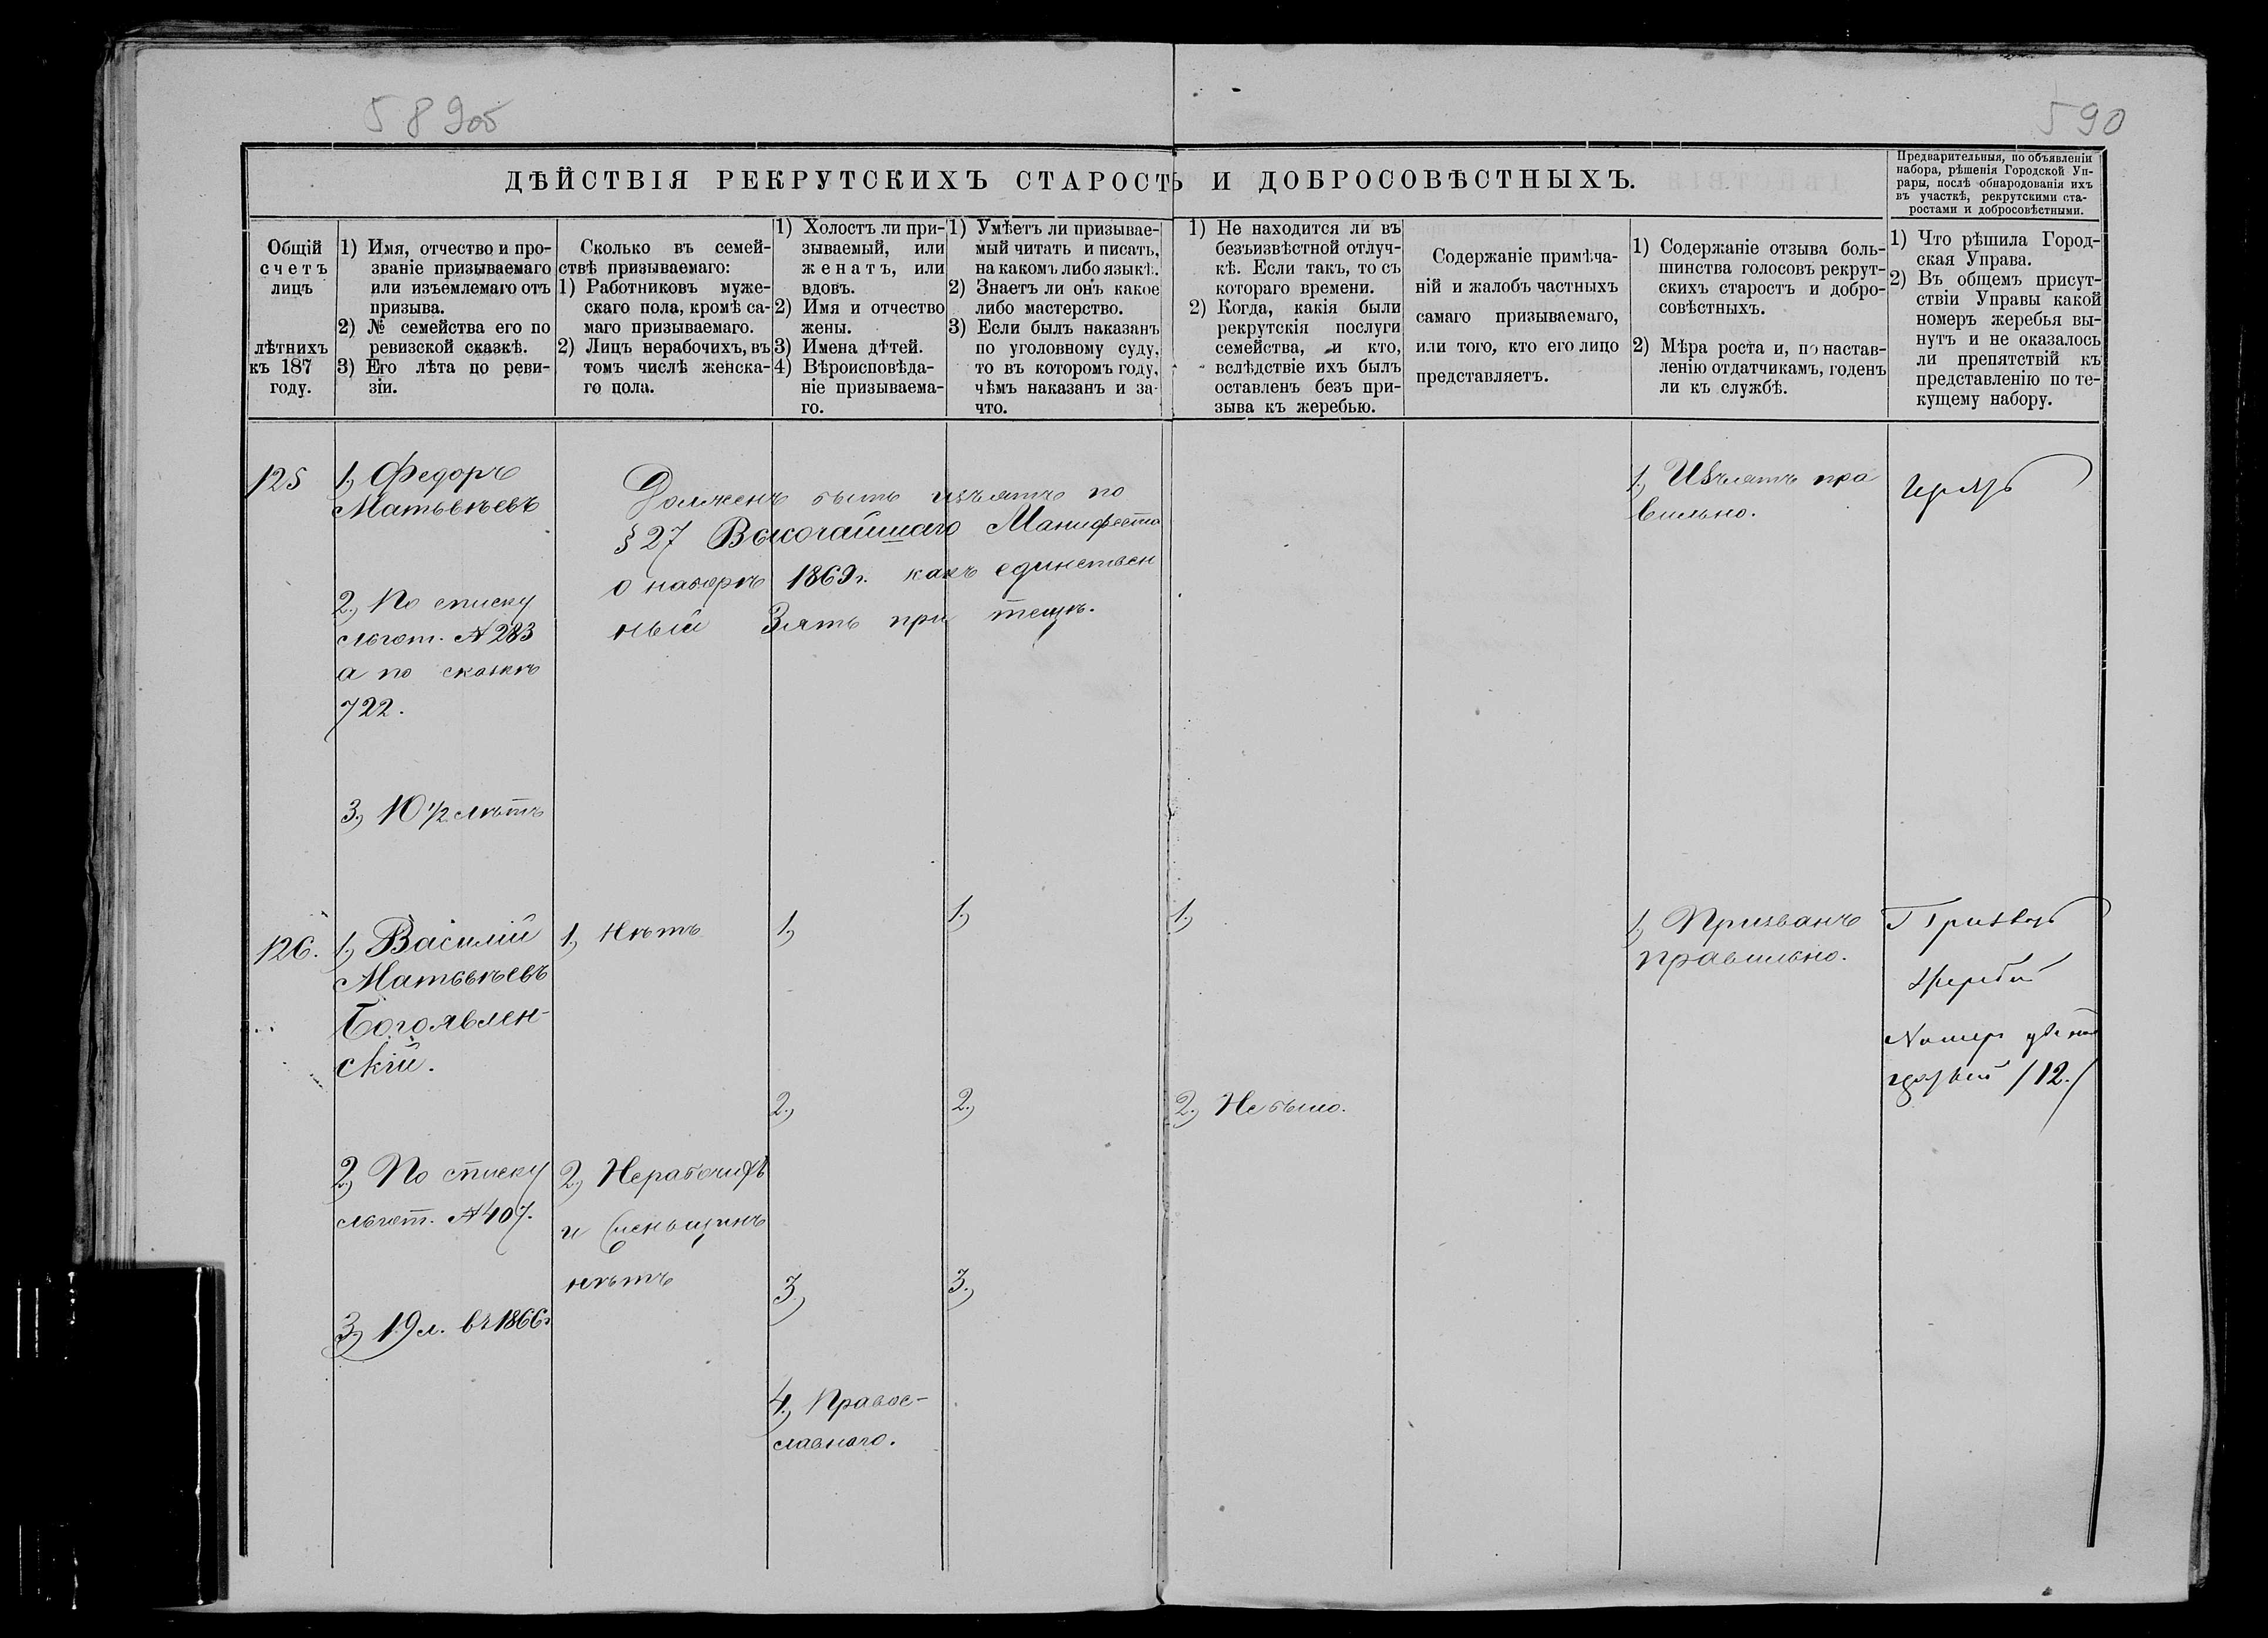 589об
590
ДѢЙСТВІЯ РЕКРУТСКИХЪ СТАРОСТЪ И ДОБРОСОВѢСТНЫХЪ.
Предварительныя, по объявленіи
набора, рѣшенія Городской Уп-
равы, послѣ обнародованія ихъ
въ участкѣ, рекрутскими ста-
ростами и добросовѣстными.
Общій
счетъ
лицъ
лѣтнихъ
къ 187
году.
1) Имя, отчество и про-
званіе призываемаго
или изъемлемаго отъ
призыва.
2) № семейства его по
ревизской сказкѣ.
3) Его лѣта по реви-
зіи.
Сколько въ семей-
ствѣ призываемаго:
1) Работниковъ муже-
скаго пола, кромѣ са-
маго призываемаго.
2) Лицъ нерабочихъ, въ
томъ числѣ женска-
го пола.
1) Холостъ ли при-
зываемый, или
женатъ, или
вдовъ.
2) Имя и отчество
жены.
3) Имена дѣтей.
4) Вѣроисповѣда-
ніе призываема-
го.
1) Умѣетъ ли призывае-
мый читать и писать,
на какомъ либо языкѣ.
2) Знаетъ ли онъ какое
либо мастерство.
3) Если былъ наказанъ
по уголовному суду,
то въ которомъ году,
чѣмъ наказанъ и за
что.
1) Не находится ли въ
безъизвѣстной отлуч-
кѣ. Если такъ, то съ
котораго времени.
2) Когда, какія были
рекрутскія послуги
семейства, и кто,
вслѣдствіе ихъ былъ
оставленъ безъ при-
зыва къ жеребью.
Содержаніе примѣча-
ній и жалобъ частныхъ
самаго призываемаго,
или того, кто его лицо
представляетъ.
1) Содержаніе отзыва боль-
шинства голосовъ рекрут-
скихъ старостъ и добро-
совѣстныхъ.
2) Мѣра роста и, по настав-
ленію отдатчикамъ, годенъ
ли къ службѣ.
1) Что рѣшила Город-
ская Управа.
2) Въ общемъ присут-
ствіи Управы какой
номеръ жеребья вы-
нутъ и не оказалось
ли препятствій къ
представленію по те-
кущему набору.
125
1, Федоръ
Матвѣевъ
2, По списку
льгот. № 283
а по сказкѣ
722.
3, 10 1/2 лѣтъ
Долженъ быть изъятъ по
§ 27 Высочайшаго Манифеста
о наборѣ 1869 г. какъ единствен
ный Зять при тещѣ.
1, Изъятъ пра
вильно.
126.
1, Василій
Матвѣевъ
Богоявлен-
скій.
2, По списку
льгот. № 407.
3, 19 л. въ 1866 г
1, Нѣтъ
2, Нерабочихъ
и женщинъ
нѣтъ
1,
2,
3,
4, Правос-
лавнаго.
1,
2,
3,
1,
2, Не было.
1, Призванъ
правильно.
Жребій
Номер
/12./